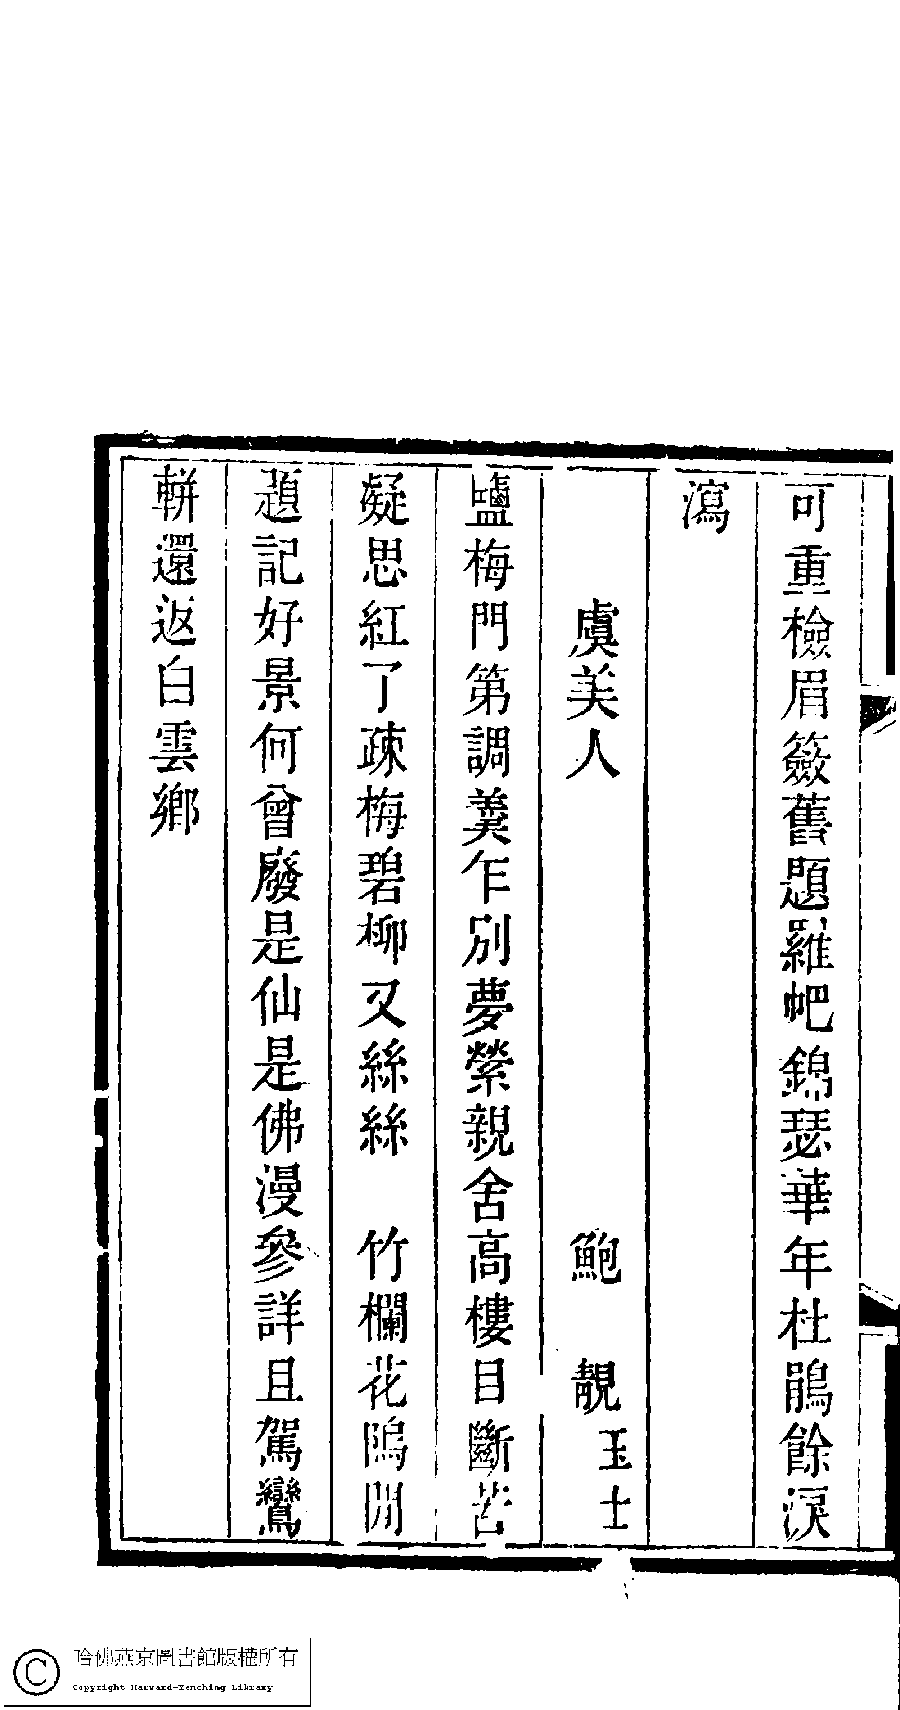 可重檢眉籢舊題羅帊錦瑟華年杜鵑餘淚
瀉
虞美人 鮑靚玉士
鹽梅門第調羹乍別夢縈親舍高樓目斷苦
凝思紅了疎梅碧柳又絲絲 竹欄花隝閒
題記好景何曾廢是仙是佛漫參詳且駕鸞
軿還返白雲鄉
哈佛燕京圖書館版權所有
Copyright Harvard-Yenching Library